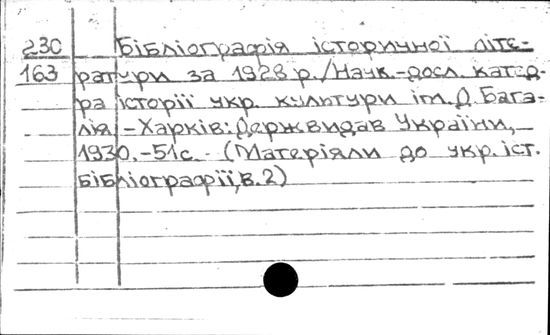 230 Бібліографія історичної літе-
163 ратури за 1928 р./Наук.-досл. катед-
ра історії укр. культури ім. Д. Бага-
лія, -Харків: Держвидав України,
1930. -51с. - (Матеріали до укр. іст.
бібліографії, в. 2)